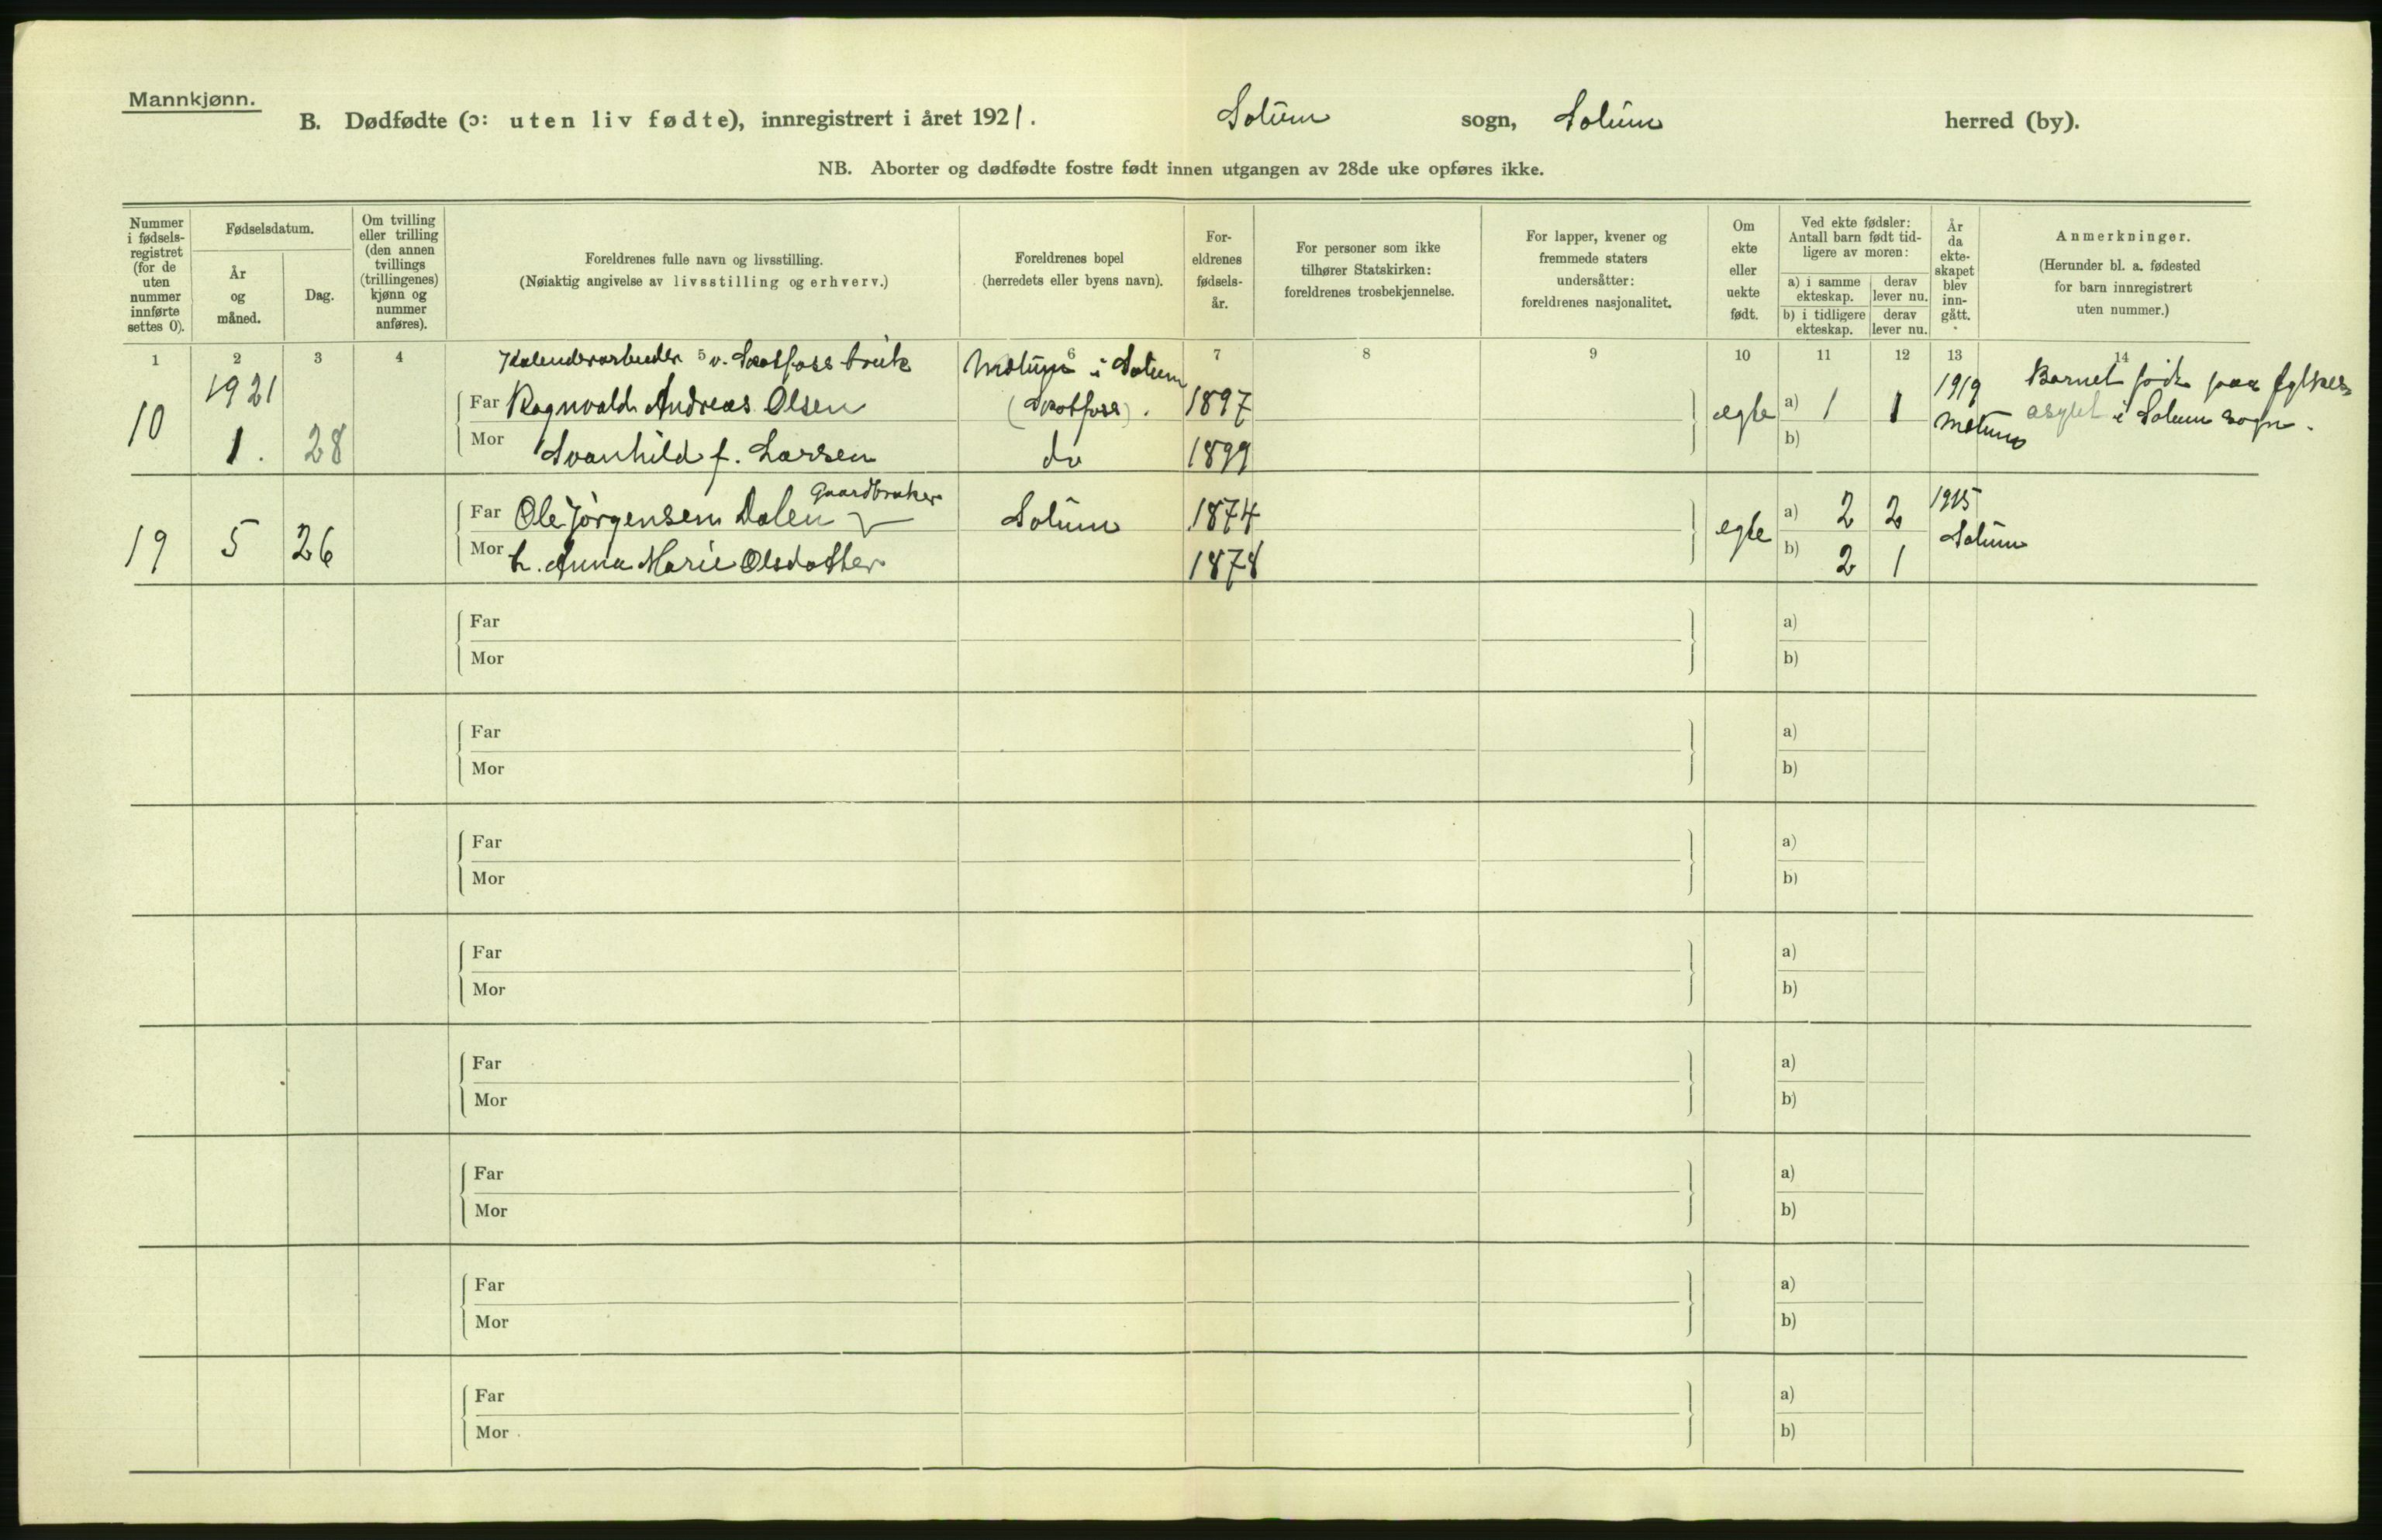 Mannkjønn.
B. Dødfødte (ɔ: uten liv fødte), innregistrert i året 1921. Solum sogn, Solum herred (by).
NB. Aborter og dødfødte fostre født innen utgangen av 28de uke opføres ikke.
Nummer i fødsels-registret (for de uten nummer innførte settes 0).
Fødselsdatum.
År og måned.
Dag.
Om tvilling eller trilling (den annen tvillings (trillingenes) kjønn og nummer anføres).
Foreldrenes fulle navn og livsstilling.
(Nøiaktig angivelse av livsstilling og erhverv.)
Foreldrenes bopel
(herredets eller byens navn).
For-eldrenes fødsels-år.
For personer som ikke tilhører Statskirken: foreldrenes trosbekjennelse.
For lapper, kvener og fremmede staters undersåtter: foreldrenes nasjonalitet.
Om ekte eller uekte født.
Ved ekte fødsler: Antall barn født tid-ligere av moren:
a) i samme ekteskap.
derav lever nu.
b) i tidligere ekteskap.
derav lever nu.
År da ekte-skapet blev inn-gått.
Anmerkninger.
(Herunder bl. a. fødested for barn innregistrert uten nummer.)
1 2 3 4 5 6 7 8 9 10 11 12 13 14
Kalenderarbeider v. Skotfoss bruk Melum i Solum
10 1921 1. 28 Far Ragnvald Andreas Olsen (Skotfoss). 1897 egte a) 1 1 1919 Melum Barnet født paa fylkes
asylet i Solum sogn.
Mor Svanhild f. Larsen do 1899 b)
Gaardbruker
19 5 26 Far Ole Jørgensen Dalen Solum 1874 egte a) 2 2 1915 Solum
Mor h. Anna Marie Olsdatter 1878 b) 2 1
Far a)
Mor b)
Far a)
Mor b)
Far a)
Mor b)
Far a)
Mor b)
Far a)
Mor b)
Far a)
Mor b)
Far a)
Mor b)
Far a)
Mor b)